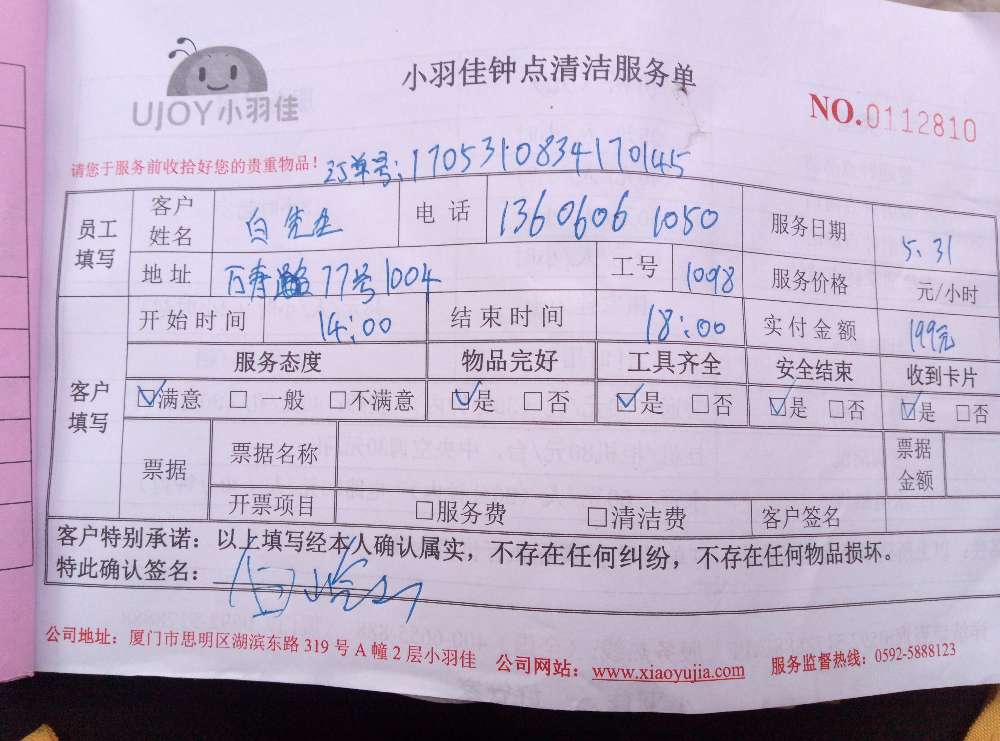 UJOY小羽佳
小羽佳钟点清洁服务单
NO.0112810
请您于服务前收拾好您的贵重物品！ 订单号：1705310834170145
员工填写 客户姓名 白先生 电话 13606061050 服务日期 5.31
地址 万寿路77号1004 工号 1098 服务价格 元/小时
客户填写 开始时间 14:00 结束时间 18:00 实付金额 199元
服务态度 物品完好 工具齐全 安全结束 收到卡片
☑满意 □一般 □不满意 ☑是 □否 ☑是 □否 ☑是 □否 ☑是 □否
票据 票据名称 票据金额
开票项目 □服务费 □清洁费 客户签名
客户特别承诺：以上填写经本人确认属实，不存在任何纠纷，不存在任何物品损坏。
特此确认签名：
公司地址：厦门市思明区湖滨东路 319 号 A 幢 2 层小羽佳 公司网站：www.xiaoyujia.com 服务监督热线：0592-5888123